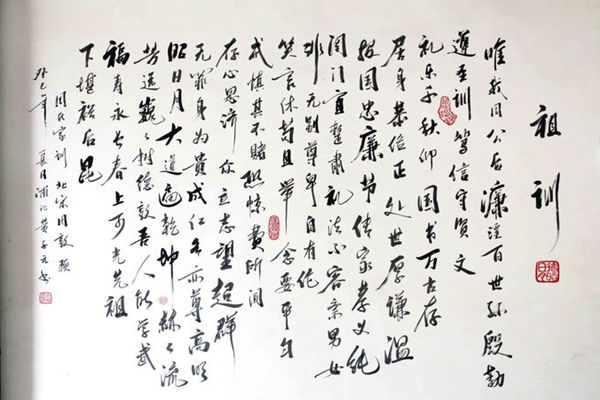 祖训
唯我周公后濂溪百世孙殷勤
遵至训笃信守贤文
礼乐千秋仰国书万古存
居身恭俭正处世厚谦温
报国忠廉节传家孝义纯
闺门宜整肃礼法不容紊男女
非无别尊卑自有伦
笑言休苟且举念要平匀
戒慎其不睹惊惧所闻
存心思济众立志望超群
无罪身为贵成仁名亦尊高明
昭日月大道遍乾坤赫赫流
芳远巍巍树德敦吾人能学武
福寿永长春上可光先祖
下堪裕后昆
周氏家训北宋周敦颐
癸巳年夏月浦江黄子元书